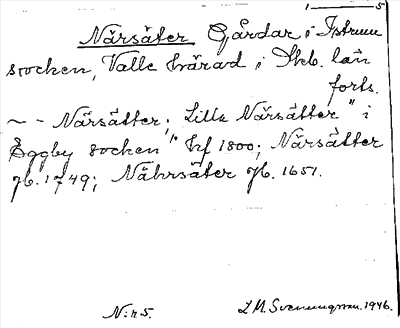 1 — 5
Närsäter Gårdar i Istrum
socken, Valle härad i Skb. län
forts.
~ ~ Närsätter; Lille Närsätter" i
Eggby socken" hf 1800; Närsätter
jb. 1749; Nährsäter jb. 1651.
N:r 5. L.M. Svenungsson. 1946.